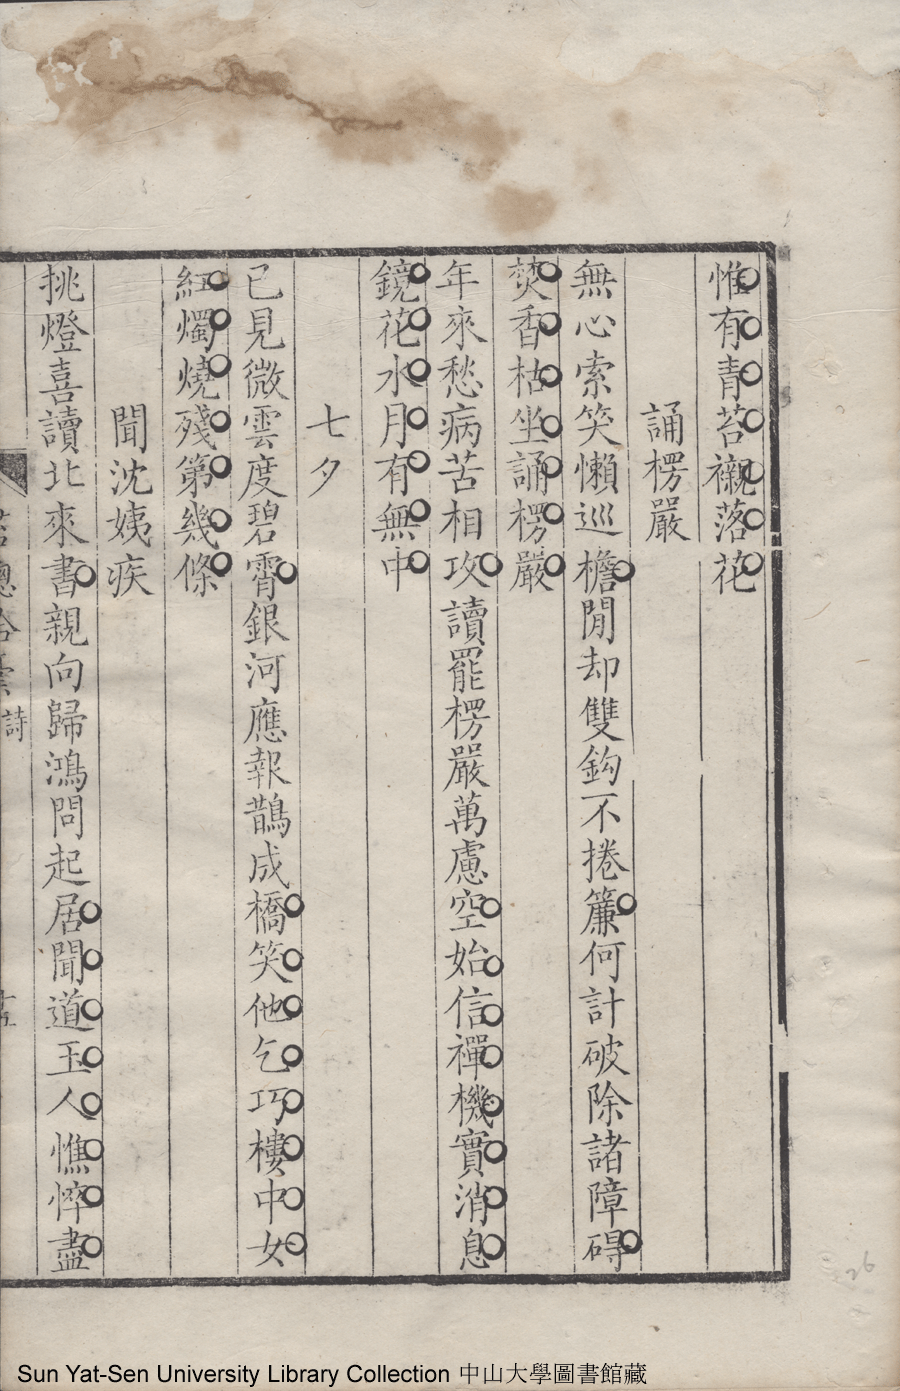 惟有青苔襯落花
誦楞嚴
無心索笑懶巡檐閒却雙鈎不捲簾何計破除諸障碍
焚香枯坐誦楞嚴
年來愁病苦相攻讀罷楞嚴萬慮空始信禪機實消息
鏡花水月有無中
七夕
已見微雲度碧霄銀河應報鵲成橋笑他乞巧樓中女
紅燭燒殘第幾條
聞沈姨疾
挑燈喜讀北來書親向歸鴻問起居聞道玉人憔悴盡
詩
Sun Yat-Sen University Library Collection 中山大學圖書館藏